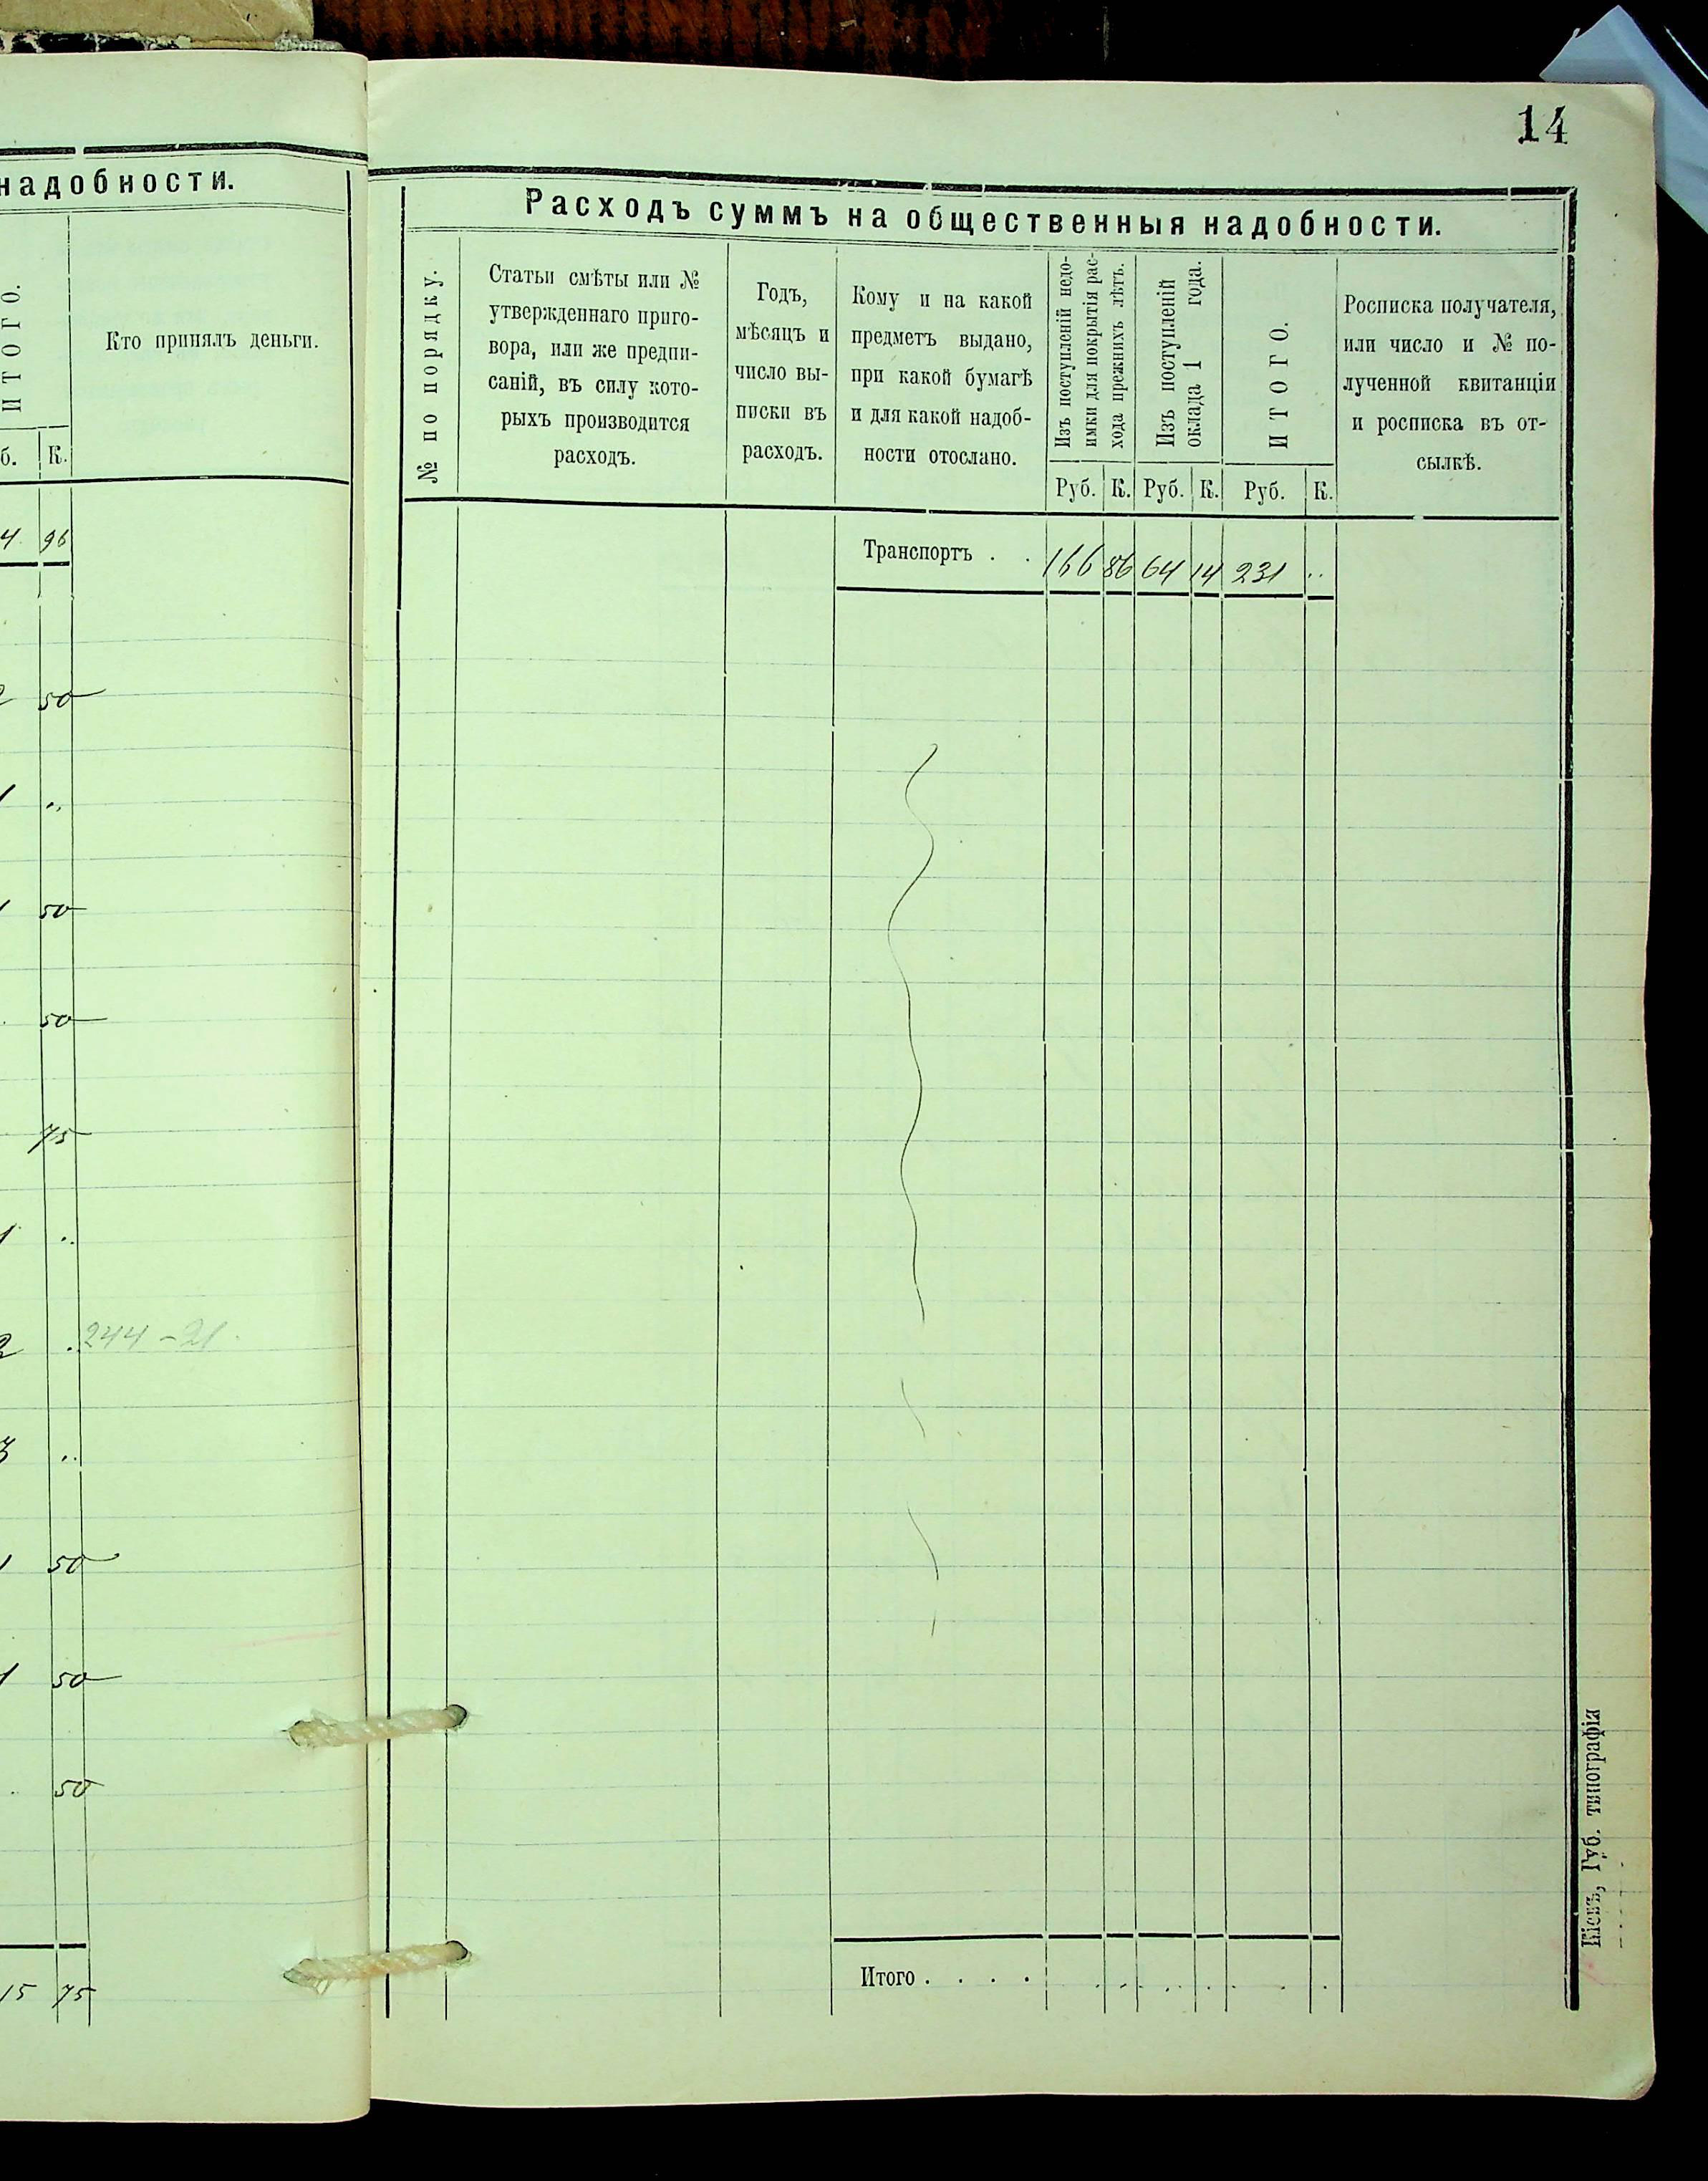 надобности.
ИТОГО.
Кто принялъ деньги.
б. К.
4 96
2 50
1 ..
1 50
. 50
75
1 ..
2 .
244 - 21.
3 ..
1 50
1 50
. 50
15 75
14
Расходъ суммъ на общественныя надобности.
№ по порядку.
Статьи смѣты или №
утвержденнаго приго-
вора, или же предпи-
саній, въ силу кото-
рыхъ производится
расходъ.
Годъ,
мѣсяцъ и
число вы-
писки въ
расходъ.
Кому и на какой
предметъ выдано,
при какой бумагѣ
и для какой надоб-
ности отослано.
Изъ поступленій недо-
имки для покрытія рас-
хода прежнихъ лѣтъ.
Изъ поступленій
оклада 1 года.
ИТОГО.
Росписка получателя,
или число и № по-
лученной квитанціи
и росписка въ от-
сылкѣ.
Руб. К. Руб. К. Руб. К.
Транспортъ . . 166 86 64 14 231 ..
Итого . . . .
Кіевъ, Губ. типографія